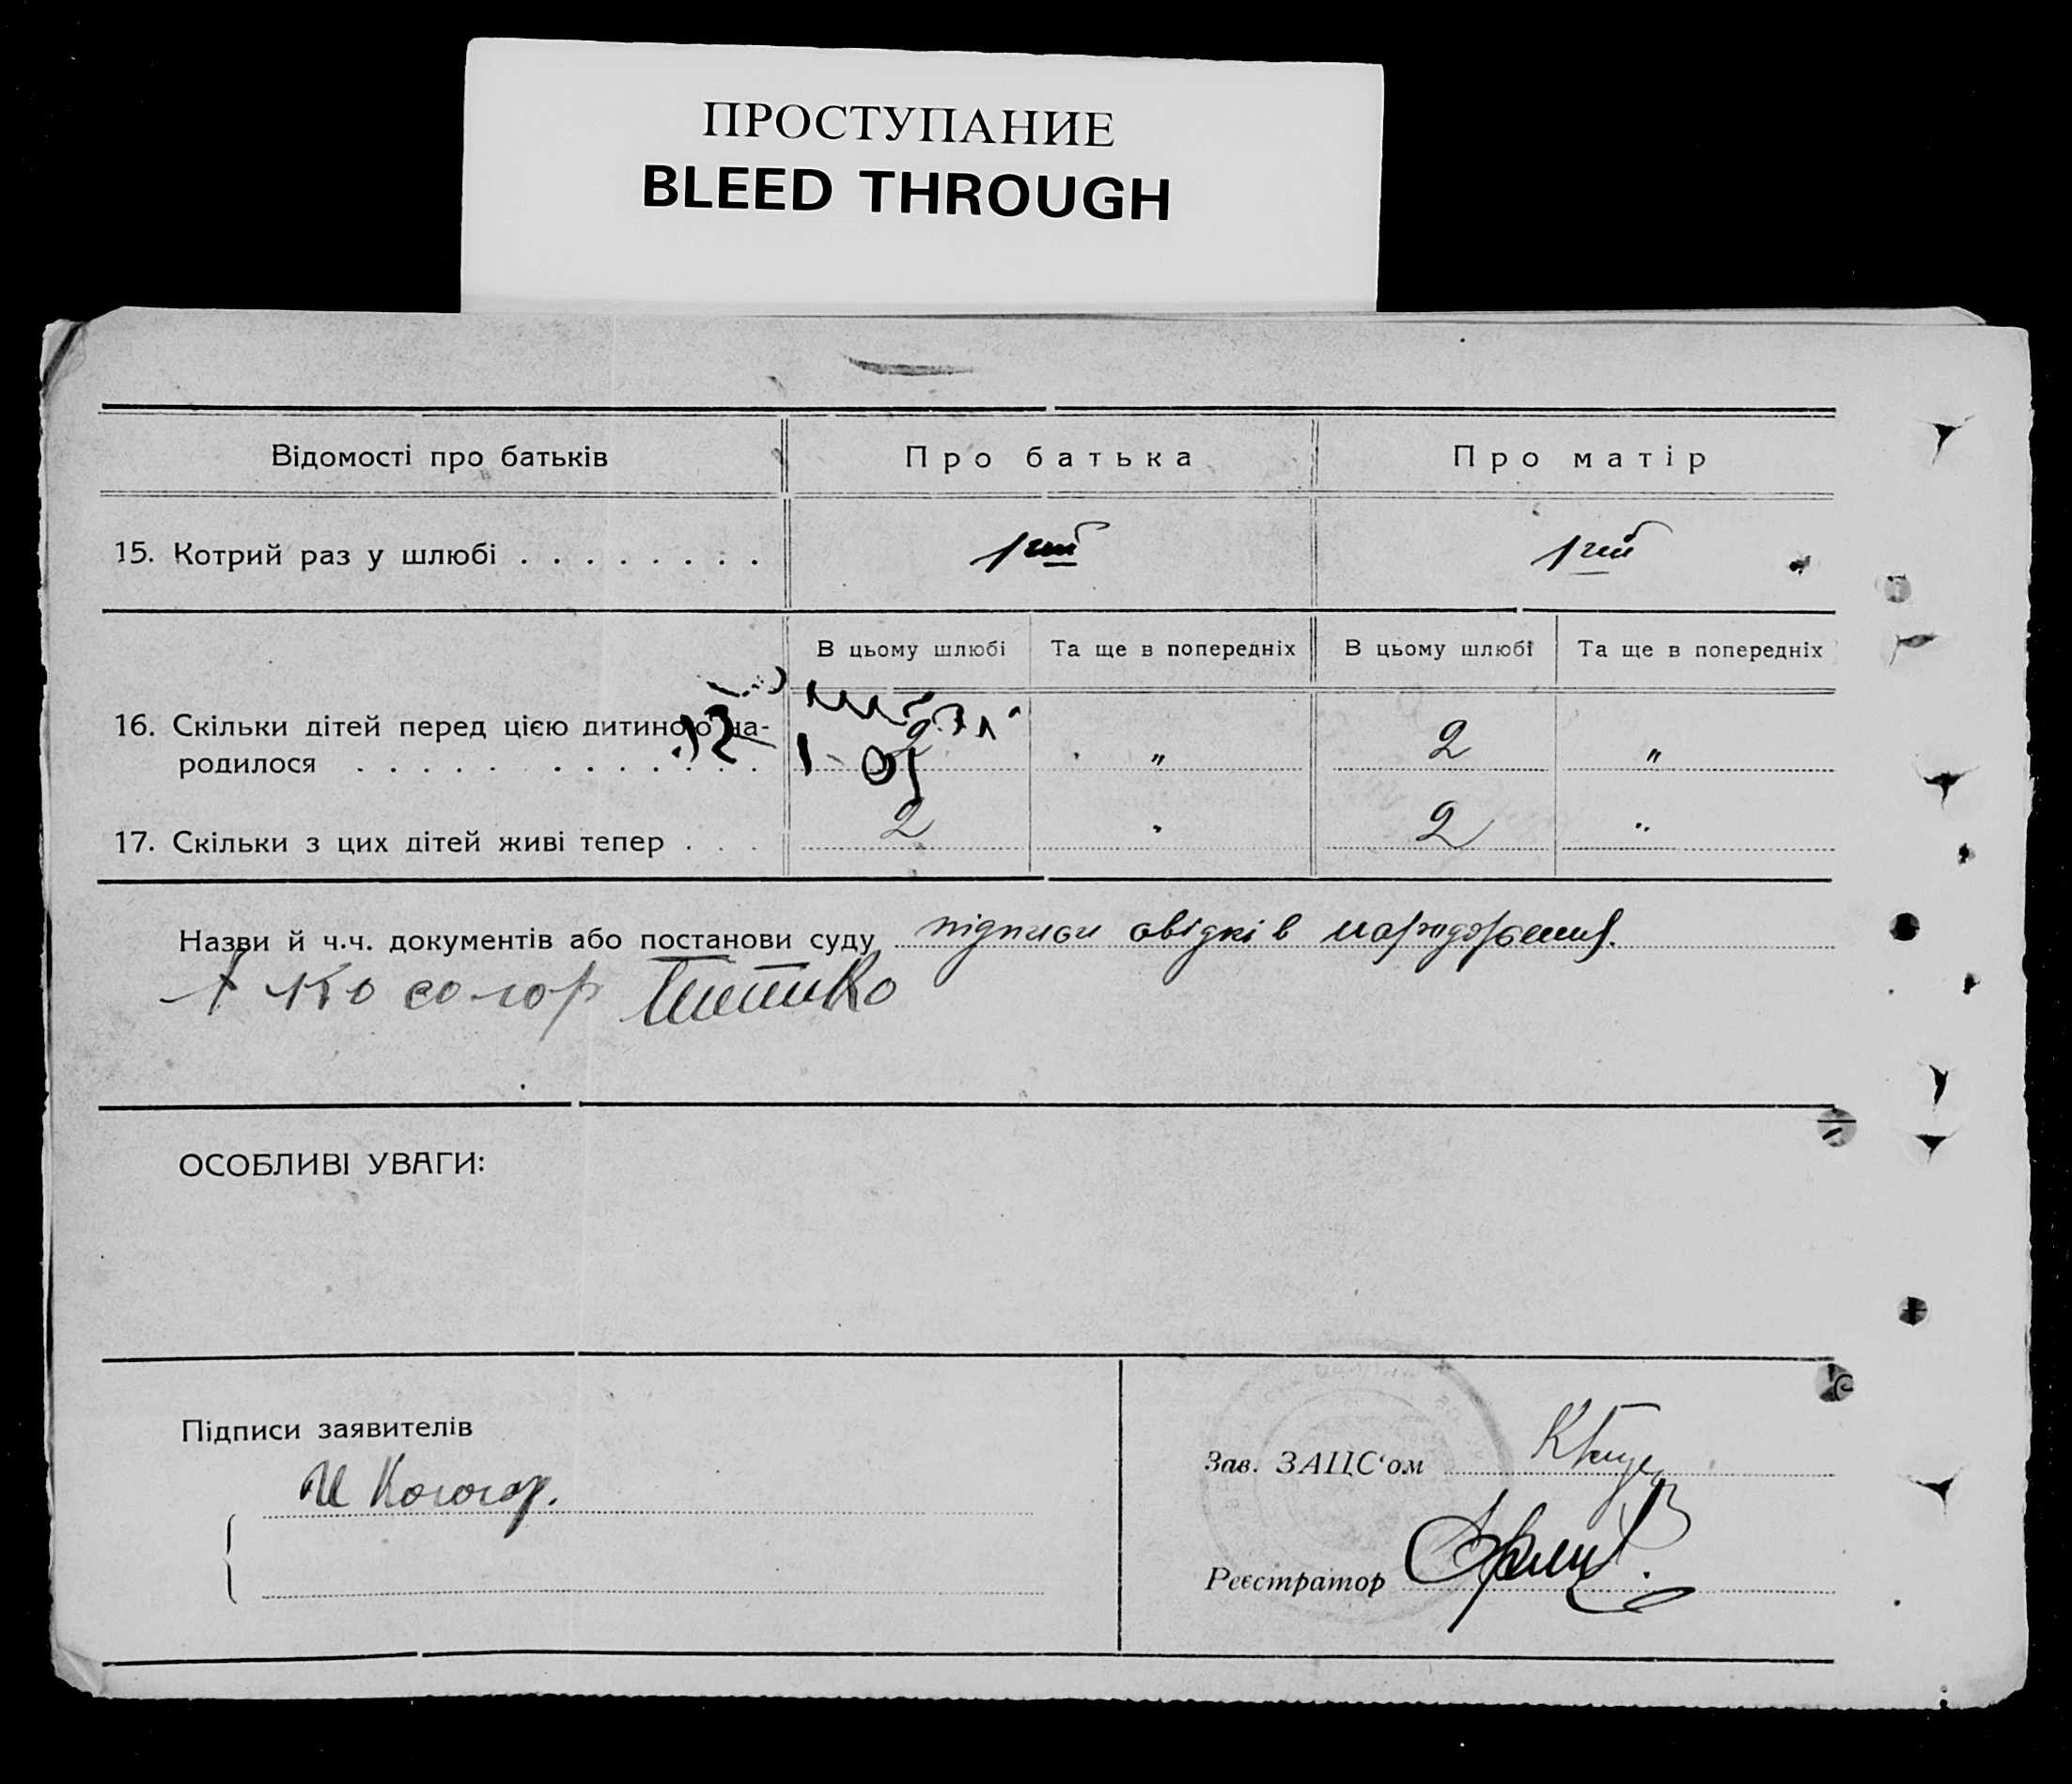 ПРОСТУПАНИЕ
BLEED THROUGH
Відомості про батьків Про батька Про матір
15. Котрий раз у шлюбі . . . . . . . . 1ший 1ший
В цьому шлюбі Та ще в попередніх В цьому шлюбі Та ще в попередніх
16. Скільки дітей перед цією дитиною на-
родилося . . . . . . . . . . . . . 2 " 2 "
17. Скільки з цих дітей живі тепер . . . 2 " 2 "
Назви й ч.ч. документів або постанови суду підписи свідків
ОСОБЛИВІ УВАГИ:
Підписи заявителів
Зав. ЗАЦС‘ом
Реєстратор